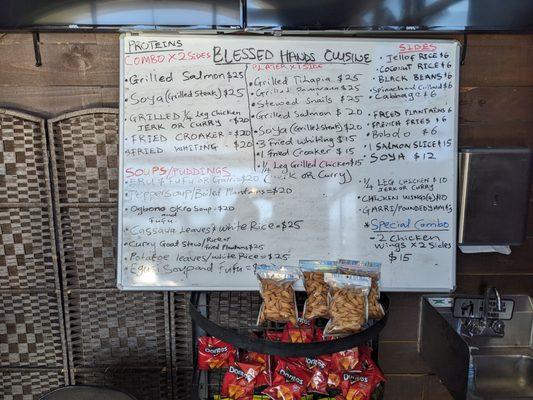 BLESSED HANDS CUISINE
PROTEINS
COMBO X 2 SIDES
• Grilled Salmon $25
• Soya (Grilled Steak) $25
• GRILLED 1/4 Leg Chicken
JERK OR CURRY - $20
• FRIED CROAKER - $20
• 4 FRIED WHITING - $20
SOUPS/PUDDINGS
$20
Soup/Boiled Plantains - $20
• Ogbono okro Soup - $20
and
FuFu
• Cassava Leaves/white Rice - $25
• Curry Goat Stew/Rice or
fried Plantains $25
• Potatoe Leaves/white Rice = $25
• Egusi Soup and Fufu = $
X 1 SIDE
• Grilled Tilapia $25
• Grilled $25
• Stewed Snails $25
• Grilled Salmon $20
• Soya (Grilled Steak) $20
• 3 Fried Whiting $15
• 1 Fried Croaker $15
• 1/4 Leg Grilled Chicken $15
(JERK OR CURRY)
SIDES
• Jellof RICE $6
• COCONUT RICE $6
• BLACK BEANS $6
• Spinach and
Cabbage $6
• FRIED PLANTAINS $6
• FRENCH FRIES $6
• Bobolo $6
• 1 SALMON SLICE $15
• SOYA $12
• 1/4 LEG CHICKEN $10
JERK OR CURRY
• CHICKEN WINGS (4) $10
• GARRI/POUNDED YAM $
* Special Combo
- 2 Chicken
Wings X 2 Sides
$15
Doritos
Doritos
Doritos
Doritos
Doritos